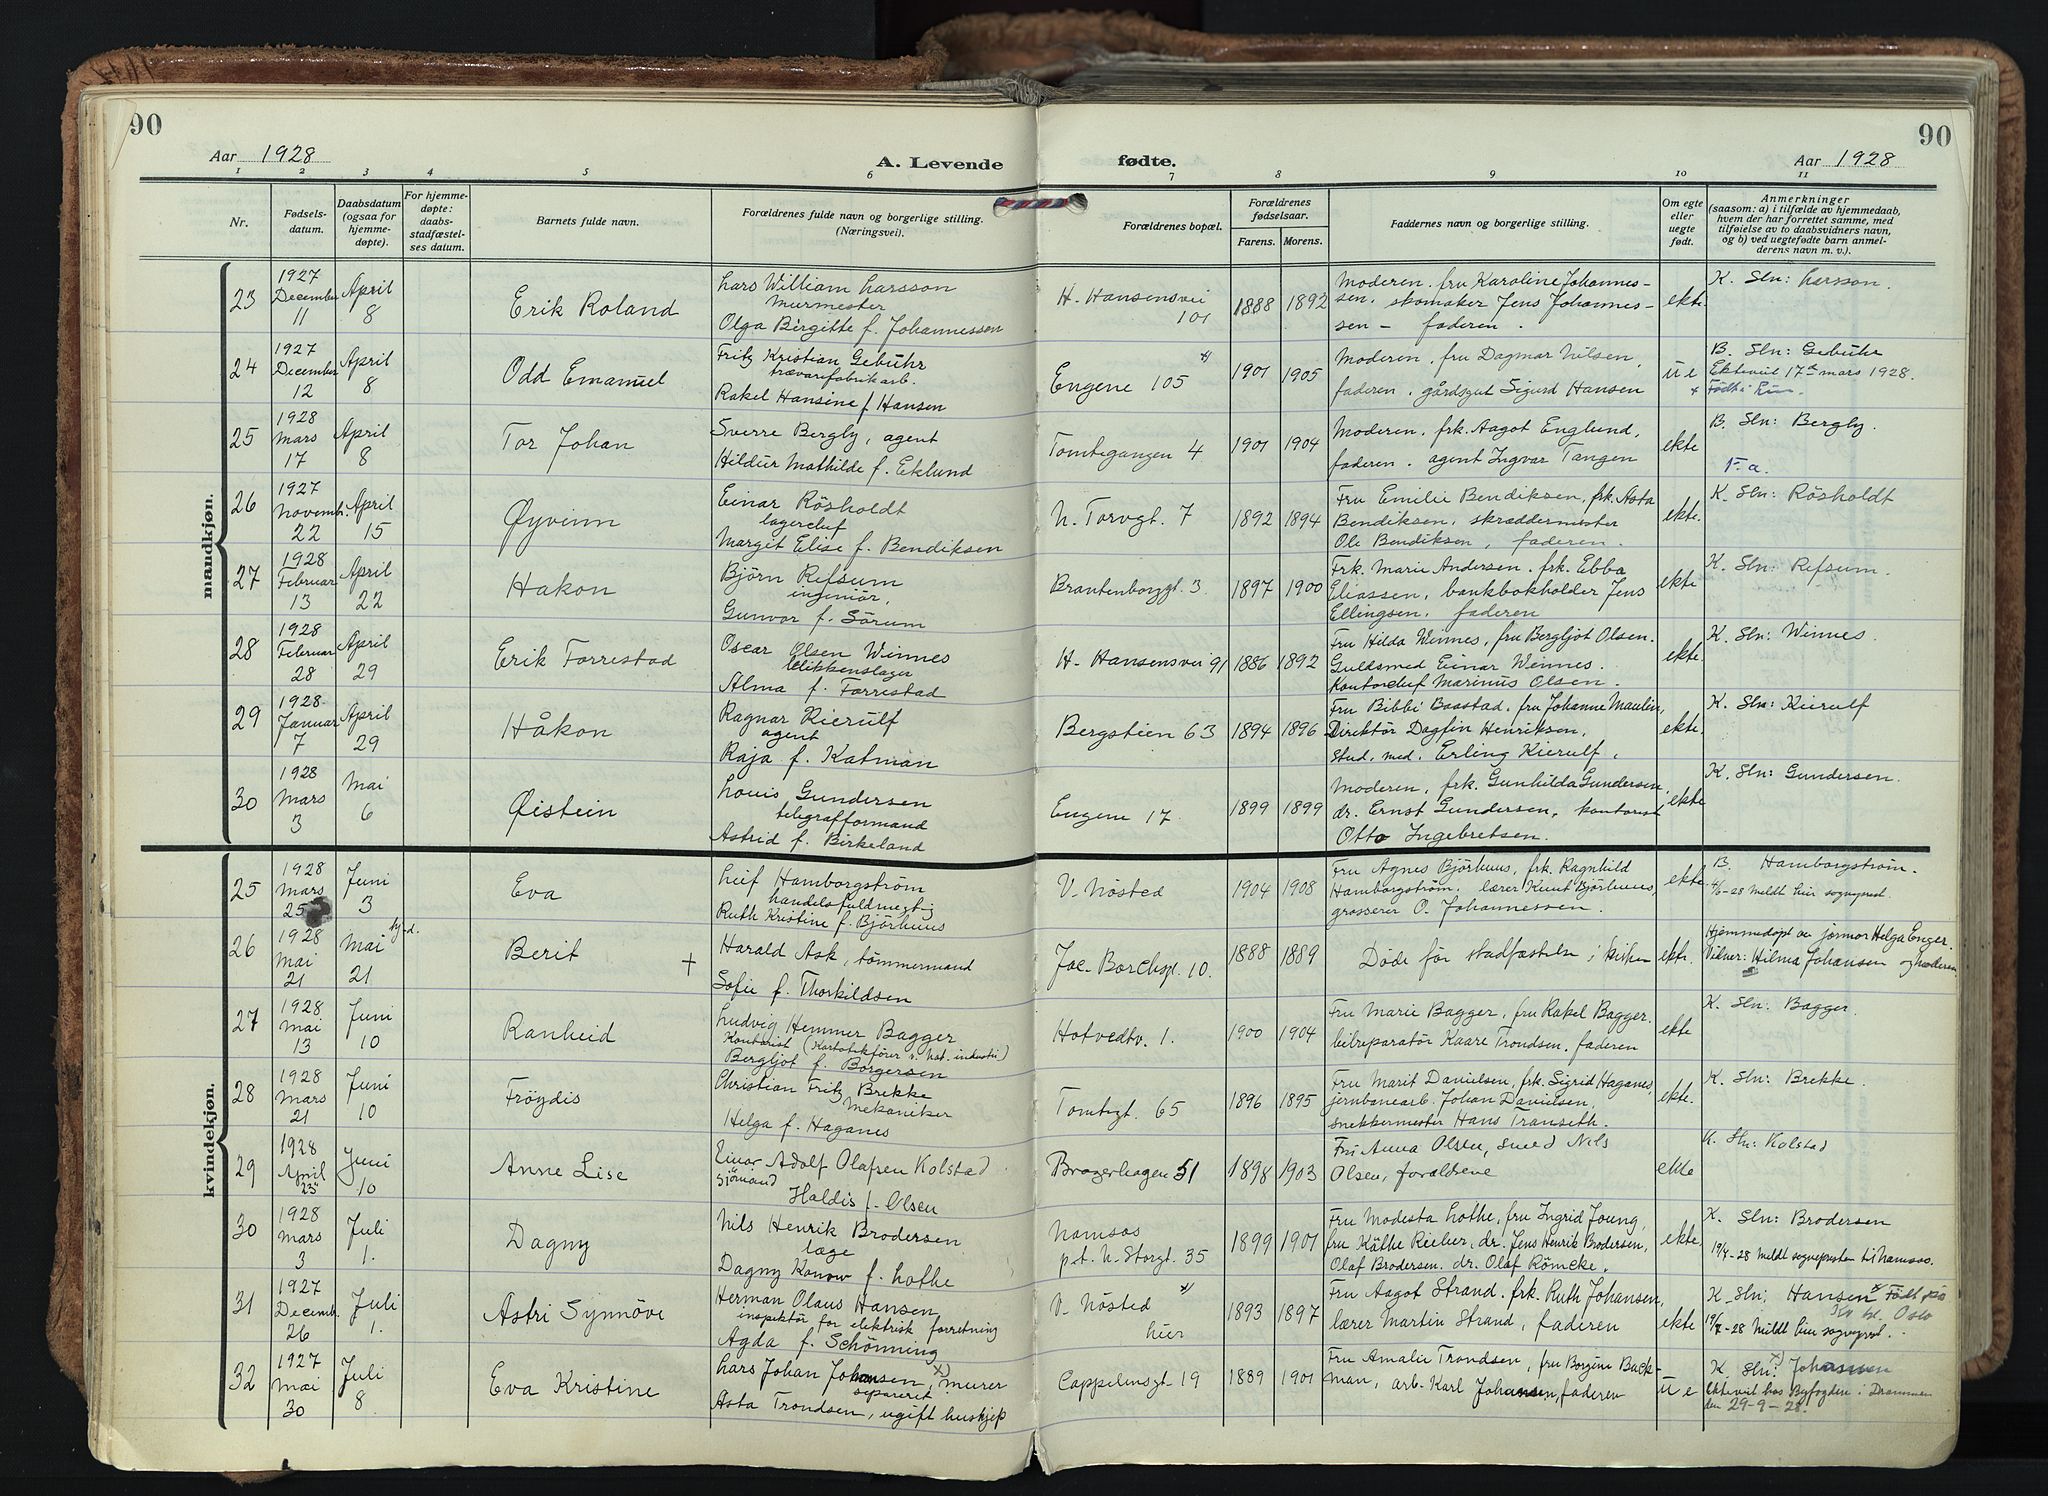 90
90
Aar 1928
A. Levende
fødte.
Aar 1928
1 2 3 4 5 6 7 8 9 10 11
Nr.
Fødsels-
datum.
Daabsdatum
(ogsaa for
hjemme-
døpte).
For hjemme-
døpte:
daabs-
stadfæstel-
ses datum.
Barnets fulde navn.
Forældrenes fulde navn og borgerlige stilling.
(Næringsvei).
Forældrenes bopæl.
Forældrenes
fødselsaar.
Farens. Morens.
Faddernes navn og borgerlige stilling.
Om egte
eller
uegte
født.
Anmerkninger
(saasom: a) i tilfælde av hjemmedaab,
hvem der har forrettet samme, med
tilføielse av to daabsvidners navn,
og b) ved uegtefødte barn anmel-
derens navn m. v.).
mandkjøn.
23
1927
December
11
April
8
Erik Roland
Lars William Larsson
Murmester
Olga Birgitte f. Johannessen
H. Hansensvei
101
1888 1892
Moderen, fru Karoline Johannes-
sen, skomaker Jens Johannes-
sen – faderen.
ekte
K. Sln: Larsson.
24
1927
December
12
April
8
Odd Emanuel
Fritz Kristian Gebuhr
trævarefabrikarb.
Rakel Hansine f. Hansen
Engene 105
1901 1905
Moderen, fru Dagmar Nilsen,
faderen, gårdsgut Sigurd Hansen
u e
B. Sln: Gebuhr
Ekteviet 17de mars 1928.
25
1928
Mars
17
April
8
Tor Johan
Sverre Bergly, agent
Hildur Mathilde f. Eklund
Tomtegangen 4
1901 1904
Moderen, frk. Aagot Englund,
faderen, agent Ingvar Tangen
ekte
B. Sln: Bergly.
F. a.
26
1927
Novembr.
22
April
15
Øyvinn
Einar Rösholdt
lagerchef
Margit Elise f. Bendiksen
N. Torvgt. 7
1892 1894
Fru Emilie Bendiksen, frk. Asta
Bendiksen, skræddermester
Ole Bendiksen, faderen.
ekte.
K. Sln: Rösholdt
27
1928
Februar
13
April
22
Hakon
Björn Refsum
ingeniör,
Gunvor f. Sörum
Brantenborggt. 3
1897 1900
Frk. Marie Andersen. frk. Ebba
Eliassen, bankbokholder Jens
Ellingsen, faderen
ekte
K. Sln: Refsum.
28
1928
Februar
28
April
29
Erik Torrestad
Oscar Olsen Winnes
blikkenslager
Alma f. Torrestad
H. Hansensvei 91
1886 1892
Fru Hilda Winnes, fru Bergljot Olsen.
Guldsmed Einar Winnes.
Kontorchef Marinus Olsen.
ekte
K. Sln: Winnes.
29
1928
Januar
7
April
29
Håkon
Ragnar Kierulf
agent
Raja f. Katman
Bergstien 63
1894 1896
Fru Bibbi Baastad, fru Johanne Maulin,
Direktör Dagfin Henriksen,
stud. med. Erling Kierulf.
ekte.
K. Sln: Kierulf
30
1928
Mars
3
Mai
6
Øistein
Louis Gundersen
telegrafformand
Astrid f. Birkeland
Engene 17.
1899 1899
Moderen, frk. Gunhilda Gundersen,
dr. Ernst Gundersen, kontorist
Otto Ingebretsen.
ekte
K. Sln: Gundersen.
kvindekjøn.
25
1928
Mars
25
Juni
3
Eva
Leif Hamborgström
handelsfuldmegtig
Ruth Kristine f. Björhuus
V. Nösted
1904 1908
Fru Agnes Björhuus, frk. Ragnhild
Hamborgström, lærer Knut Björhuus,
grosserer O. Johannessen.
ekte
B. Hamborgström.
4/6-28 Meldt hier sogneprest.
26
1928
Mai
21
Mai hj-d.
21
Berit †
Harald Ask, tömmermand
Sofie f. Thorkildsen
Jac. Borchsgt. 10.
1888 1889
Döde för stadfæstelse i kirken
ekte.
Hjemmedöpt av jormor Helga Enger.
Vitner: Hilma Johansen og moderen
27
1928
Mai
13
Juni
10
Ranheid
Ludvig Hemmer Bagger
Kontorist (Kartotekförer v. Nat. industri)
Bergljot f. Borgersen
Hotvedtv. 1.
1900 1904
Fru Marie Bagger, fru Rakel Bagger.
bilreparatör Kaare Trondsen, faderen
ekte
K. Sln: Bagger.
28
1928
Mars
21
Juni
10
Fröydis
Christian Fritz Brekke
Mekaniker
Helga f. Haganes
Tomtegt. 65
1896 1895
Fru Marit Danielsen, frk. Sigrid Haganes,
jernbanearb. Johan Danielsen,
snekkermester Hans Transeth.
ekte.
K. Sln: Brekke.
29
1928
April
25
Juni
10
Anne Lise
Einar Adolf Olafsen Kolstad
sjömand
Haldis f. Olsen
Bragerhagen 51
1898 1903
Fru Anna Olsen, smed Nils
Olsen, forældrene
ekte
K. Sln: Kolstad
30
1928
Mars
3
Juli
1.
Dagny
Nils Henrik Brodersen
læge
Dagny Konow f. Lothe
Namsos
p.t. N. Storgt. 35
1899 1901
Fru Modesta Lothe, fru Ingrid Joung,
fru Käthe Rieber, dr. Jens Henrik Brodersen,
Olaf Brodersen, dr. Olaf Römcke.
ekte
K. Sln: Brodersen
19/4-28 Meldt sognepresten til Namsos.
31
1927
Decemb.
26
Juli
1.
Astri Synnöve
Herman Olaus Hansen
inspektör for elektrisk forretning
Agda f. Schönning
V. Nösted
hier
1893 1897
Fru Aagot Strand. frk. Ruth Johansen,
lærer Martin Strand, faderen
ekte
K. Sln: Hansen * Født på
Kv. kl. Oslo
19/7-28 Meldt hier sogneprest.
32
1927
Mai
30
Juli
8
Eva Kristine
Lars Johan Johansen x) murer
separert
Asta Trondsen, ugift huskjep
Cappelensgt. 19
1889 1901
Fru Amalie Trondsen, fru Borgine Back-
man, arb. Karl Johansen, faderen
u e
K. Sln: x) Johansen
Ekteviet hos Byfogden i Drammen
den 29-9-28.